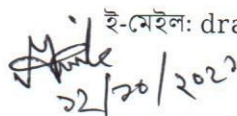 ই-মেইল: dra
১২/১০/২০২১